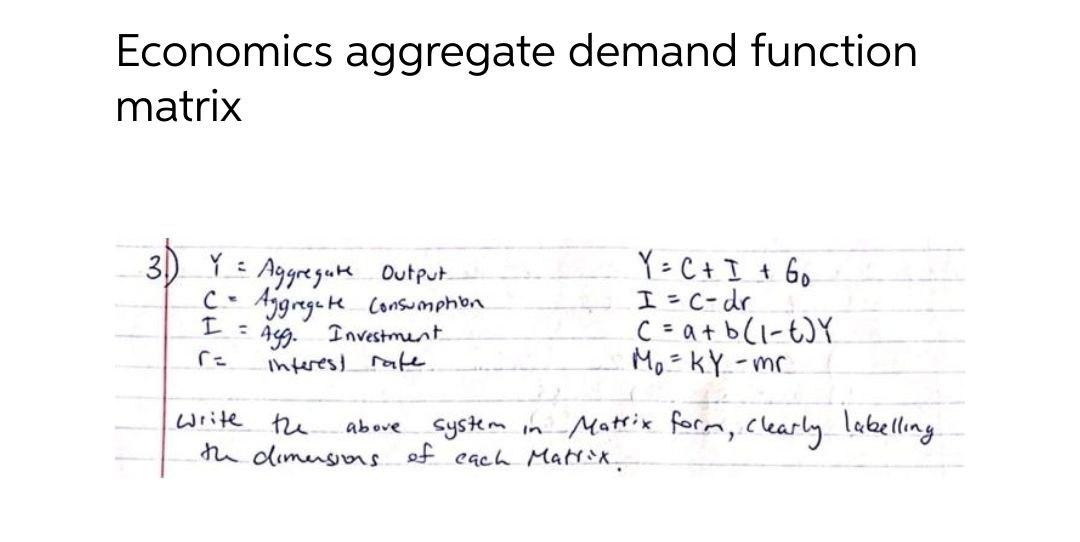 Economics aggregate demand function
matrix
3) Y = Aggregate Output
C = Aggregate Consumption
I = Agg. Investment
r = interest rate
Y = C + I + G₀
I = c - dr
C = a + b(1-t)Y
M₀ = kY - mr
Write the above system in Matrix form, clearly labelling
the dimensions of each Matrix.